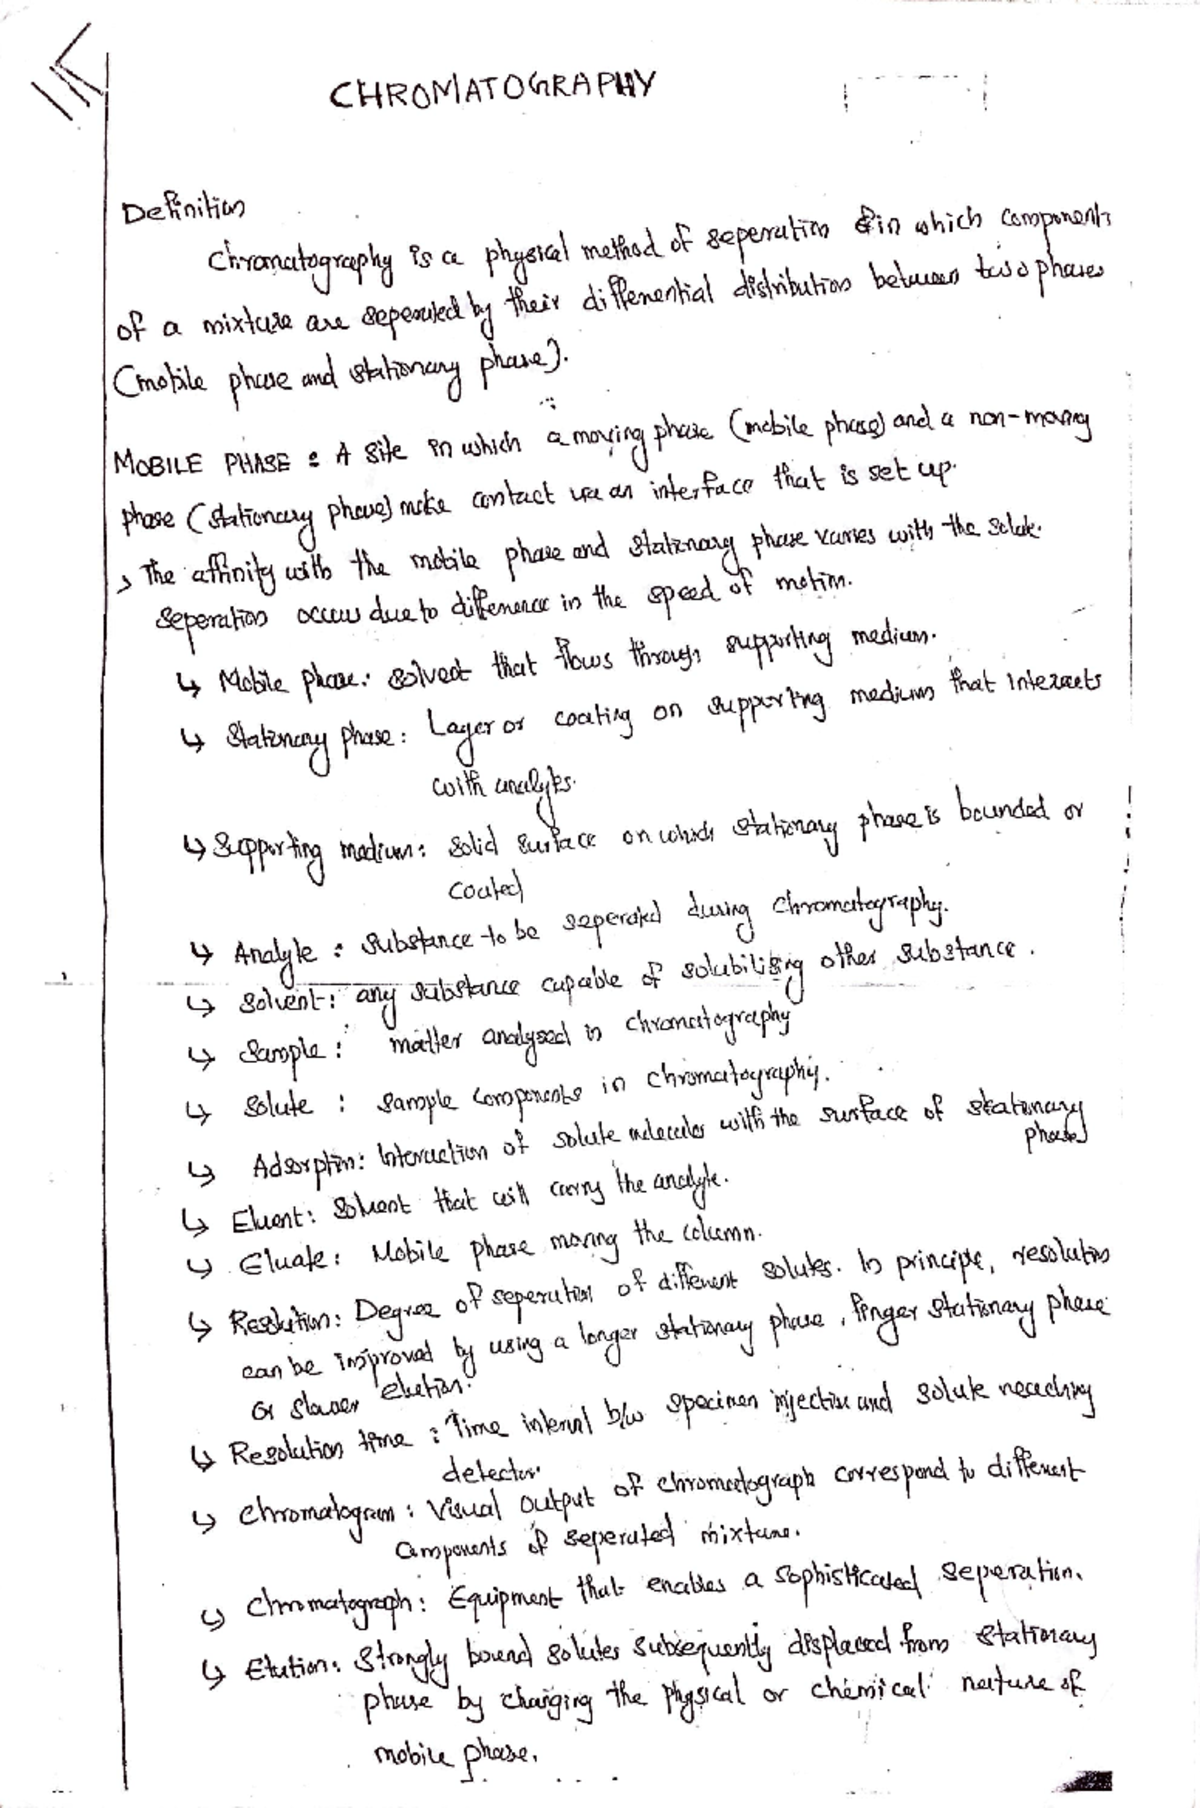 CHROMATOGRAPHY
Definition
Chromatography is a physical method of seperation in which components
of a mixture are seperated by their differential distribution between two phases
(mobile phase and stationary phase).
MOBILE PHASE : A site in which a moving phase (mobile phase) and a non-moving
phase (stationary phase) make contact via an interface that is set up.
> The affinity with the mobile phase and stationary phase varies with the solute.
seperation occurs due to difference in the speed of motion.
↳ Mobile phase: solvent that flows through supporting medium.
↳ Stationary phase: Layer or coating on supporting medium that interacts
with analytes.
↳ Supporting medium: solid surface on which stationary phase is bounded or
coated
↳ Analyte : substance to be seperated during chromatography.
↳ solvent: any substance capable of solubilizing other substance.
↳ Sample : matter analysed in chromatography
↳ solute : sample components in chromatography.
↳ Adsorption: Interaction of solute molecules with the surface of stationary
phase
↳ Eluent: Solvent that will carry the analyte.
↳ Eluate: Mobile phase moving the column.
↳ Resolution: Degree of seperation of different solutes. In principle, resolution
can be improved by using a longer stationary phase, finger stationary phase
or slower elution.
↳ Resolution time : Time interval b/w specimen injection and solute reaching
detector.
↳ chromatogram : Visual output of chromatograph correspond to different
components of seperated mixture.
↳ chromatograph: Equipment that enables a sophisticated seperation.
↳ Elution: Strongly bound solutes subsequently displaced from stationary
phase by changing the physical or chemical nature of
mobile phase.